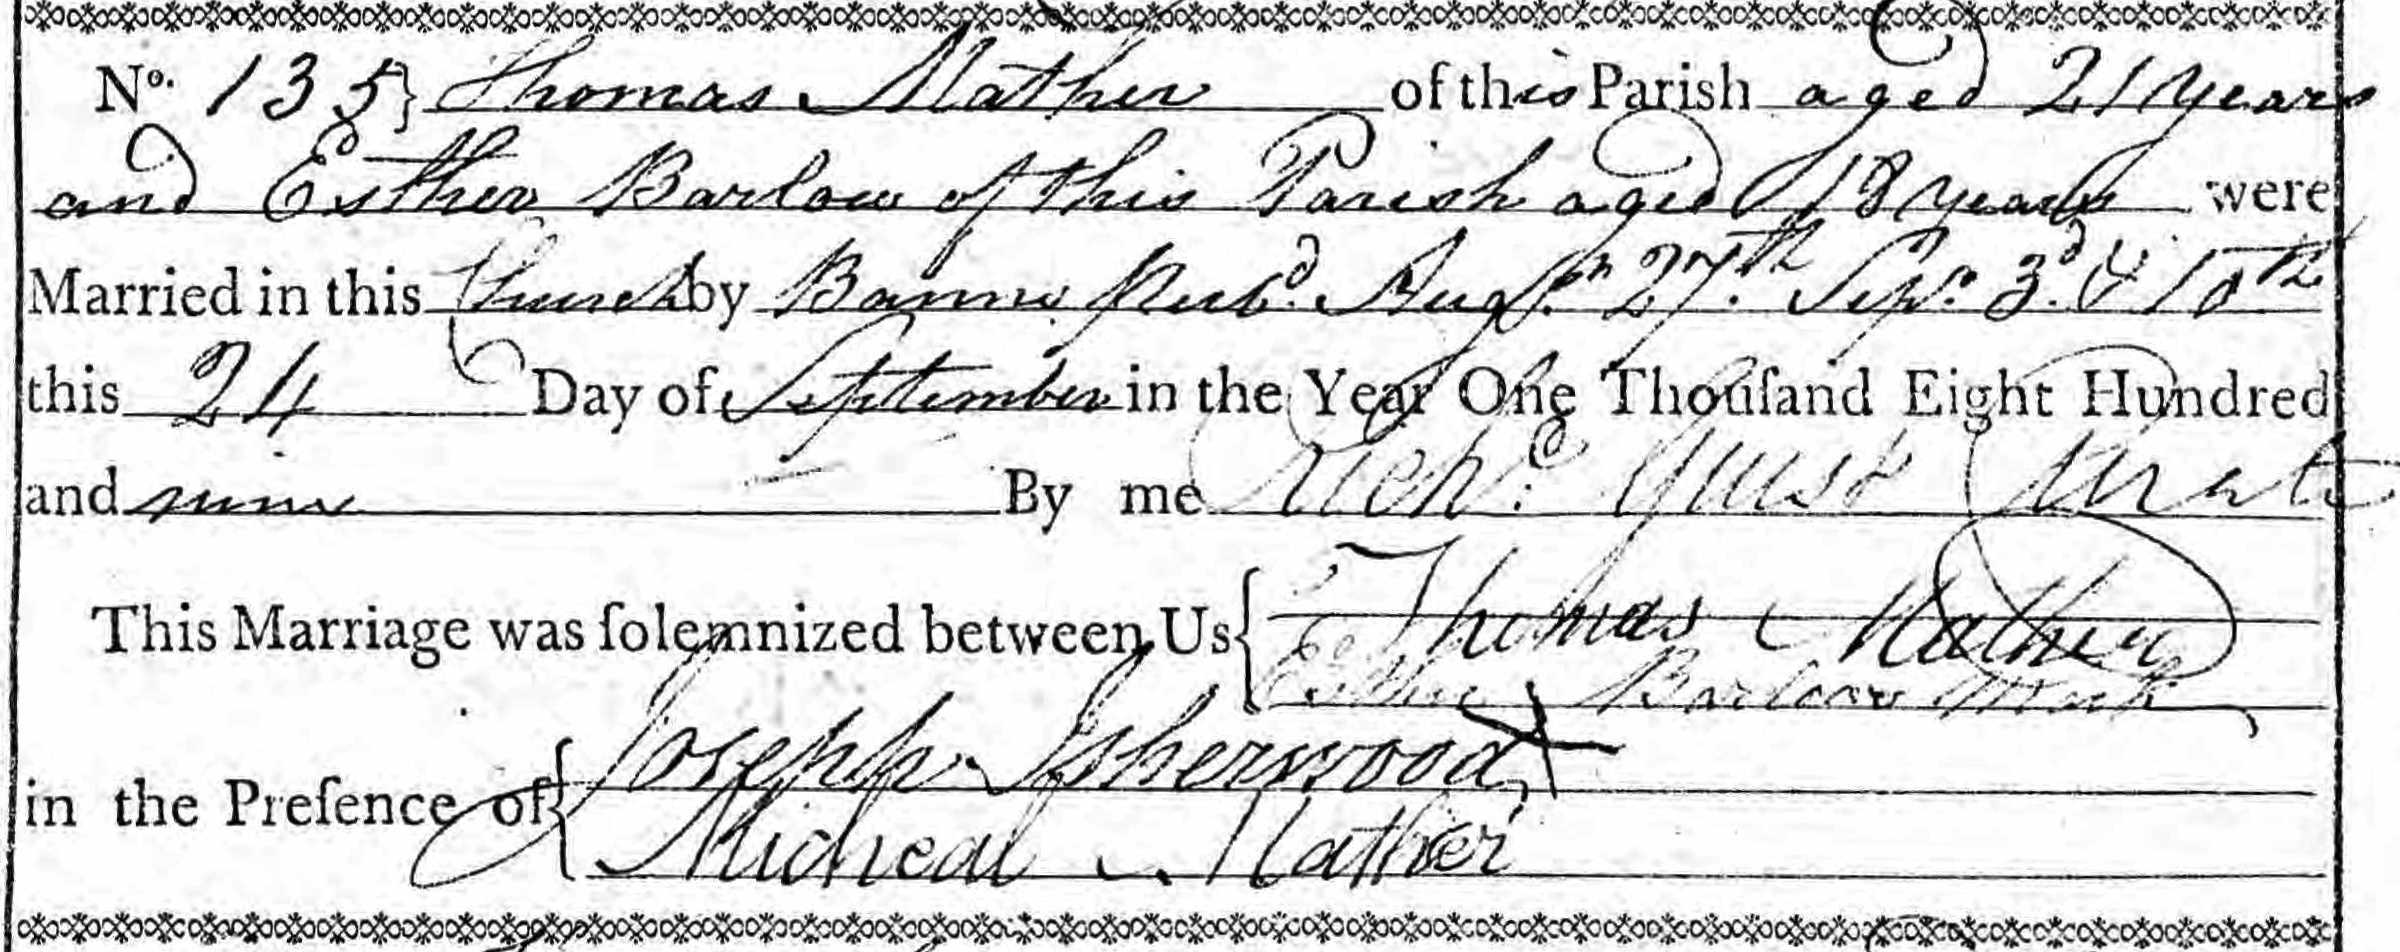 No. 135} Thomas Mather of this Parish aged 21 Years
and Esther Barlow of this Parish aged 18 years were
Married in this Church by Banns Pubd. Augt. 27.th Sepr. 3.d & 10th
this 24 Day of September in the Year One Thouſand Eight Hundred
and nine By me Richd. Guest
This Marriage was ſolemnized between Us { Thomas Mather
Esther Barlow Mark X
in the Preſence of { Joseph Isherwood
Micheal Mather